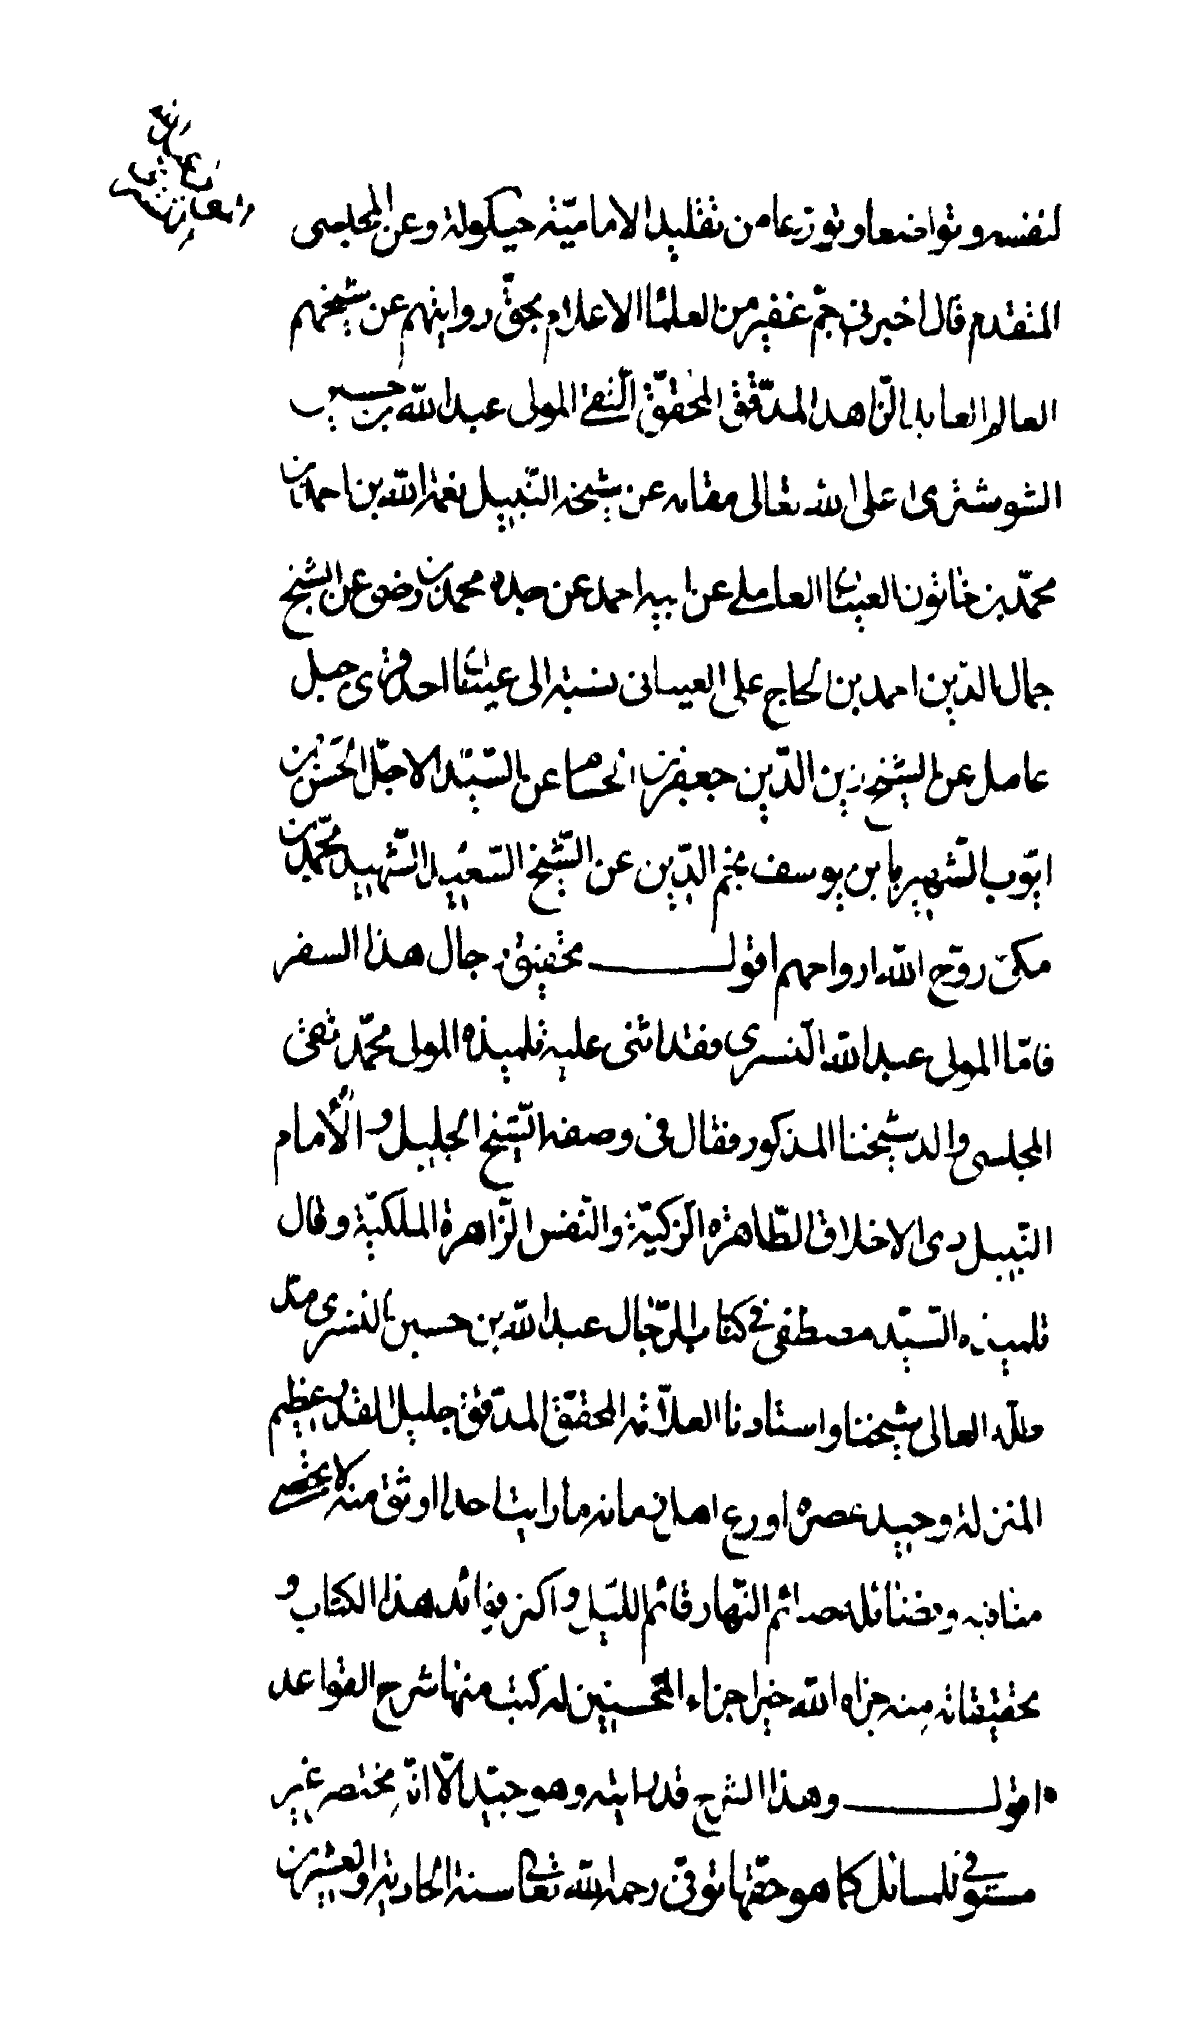 لنفسه وتواضعا وتورّعا من تقليد الاماميّة حيكولة وعن المجلسى
المتقدم قال اخبرنى جمّ غفير من العلمآء الاعلام بحقّ روايتهم عن شيخهم
العالم العابد الزّاهد المدقّق المحقّق التّقى المولى عبد الله بن حسين
الشوشترى اعلى الله تعالى مقامه عن شيخه النّبيل نعمة الله بن احمد بن
محمّد بن خاتون العيناثى العاملى عن ابيه احمد عن جده محمد بن وضوع عن الشيخ
جمال الدّين احمد بن الحاج على العيناثى نسبته الى عيناثا احد قرى جبل
عامل عن الشيخ زين الدّين جعفر بن الحسام عن السّيّد الاجلّ الحسن بن
ايّوب الشّهير بابن يوسف نجم الدّين عن الشّيخ السّعيد الشّهيد محمّد بن
مكىّ روّح الله ارواحهم اقول تحقيق رجال هذا السفر
فامّا المولى عبد الله التسترى فقد اثنى عليه تلميذه المولى محمّد تقى
المجلسى والد شيخنا المذكور فقال فى وصفه الشّيخ الجليل والامام
النّبيل ذى الاخلاق الطّاهرة الزّكيّة والنّفس الزّاهرة الملكيّة وقال
تلميذه السيّد مصطفى فى كتاب الرّجال عبد الله بن حسين التسترى مدّ
ظلّه العالى شيخنا واستادنا العلّامة المحقّق المدقّق جليل القدر عظيم
المنزلة وحيد عصره اورع اهل زمانه ما رايت احدا اوثق منه لا تحصى
مناقبه وفضائله صائم النّهار قائم اللّيل واكثر فوائد هذا الكتاب و
تحقيقاته منه جزاه الله خير اجزاء المحسنين له كتب منها شرح القواعد
اقول وهذا الشرح قد رايته وهو جيّد الّا انّه مختصر غير
مستوفى للمسائل كما هو حقّها توفّى رحمة الله تعالى سنة الحادية والعشرين